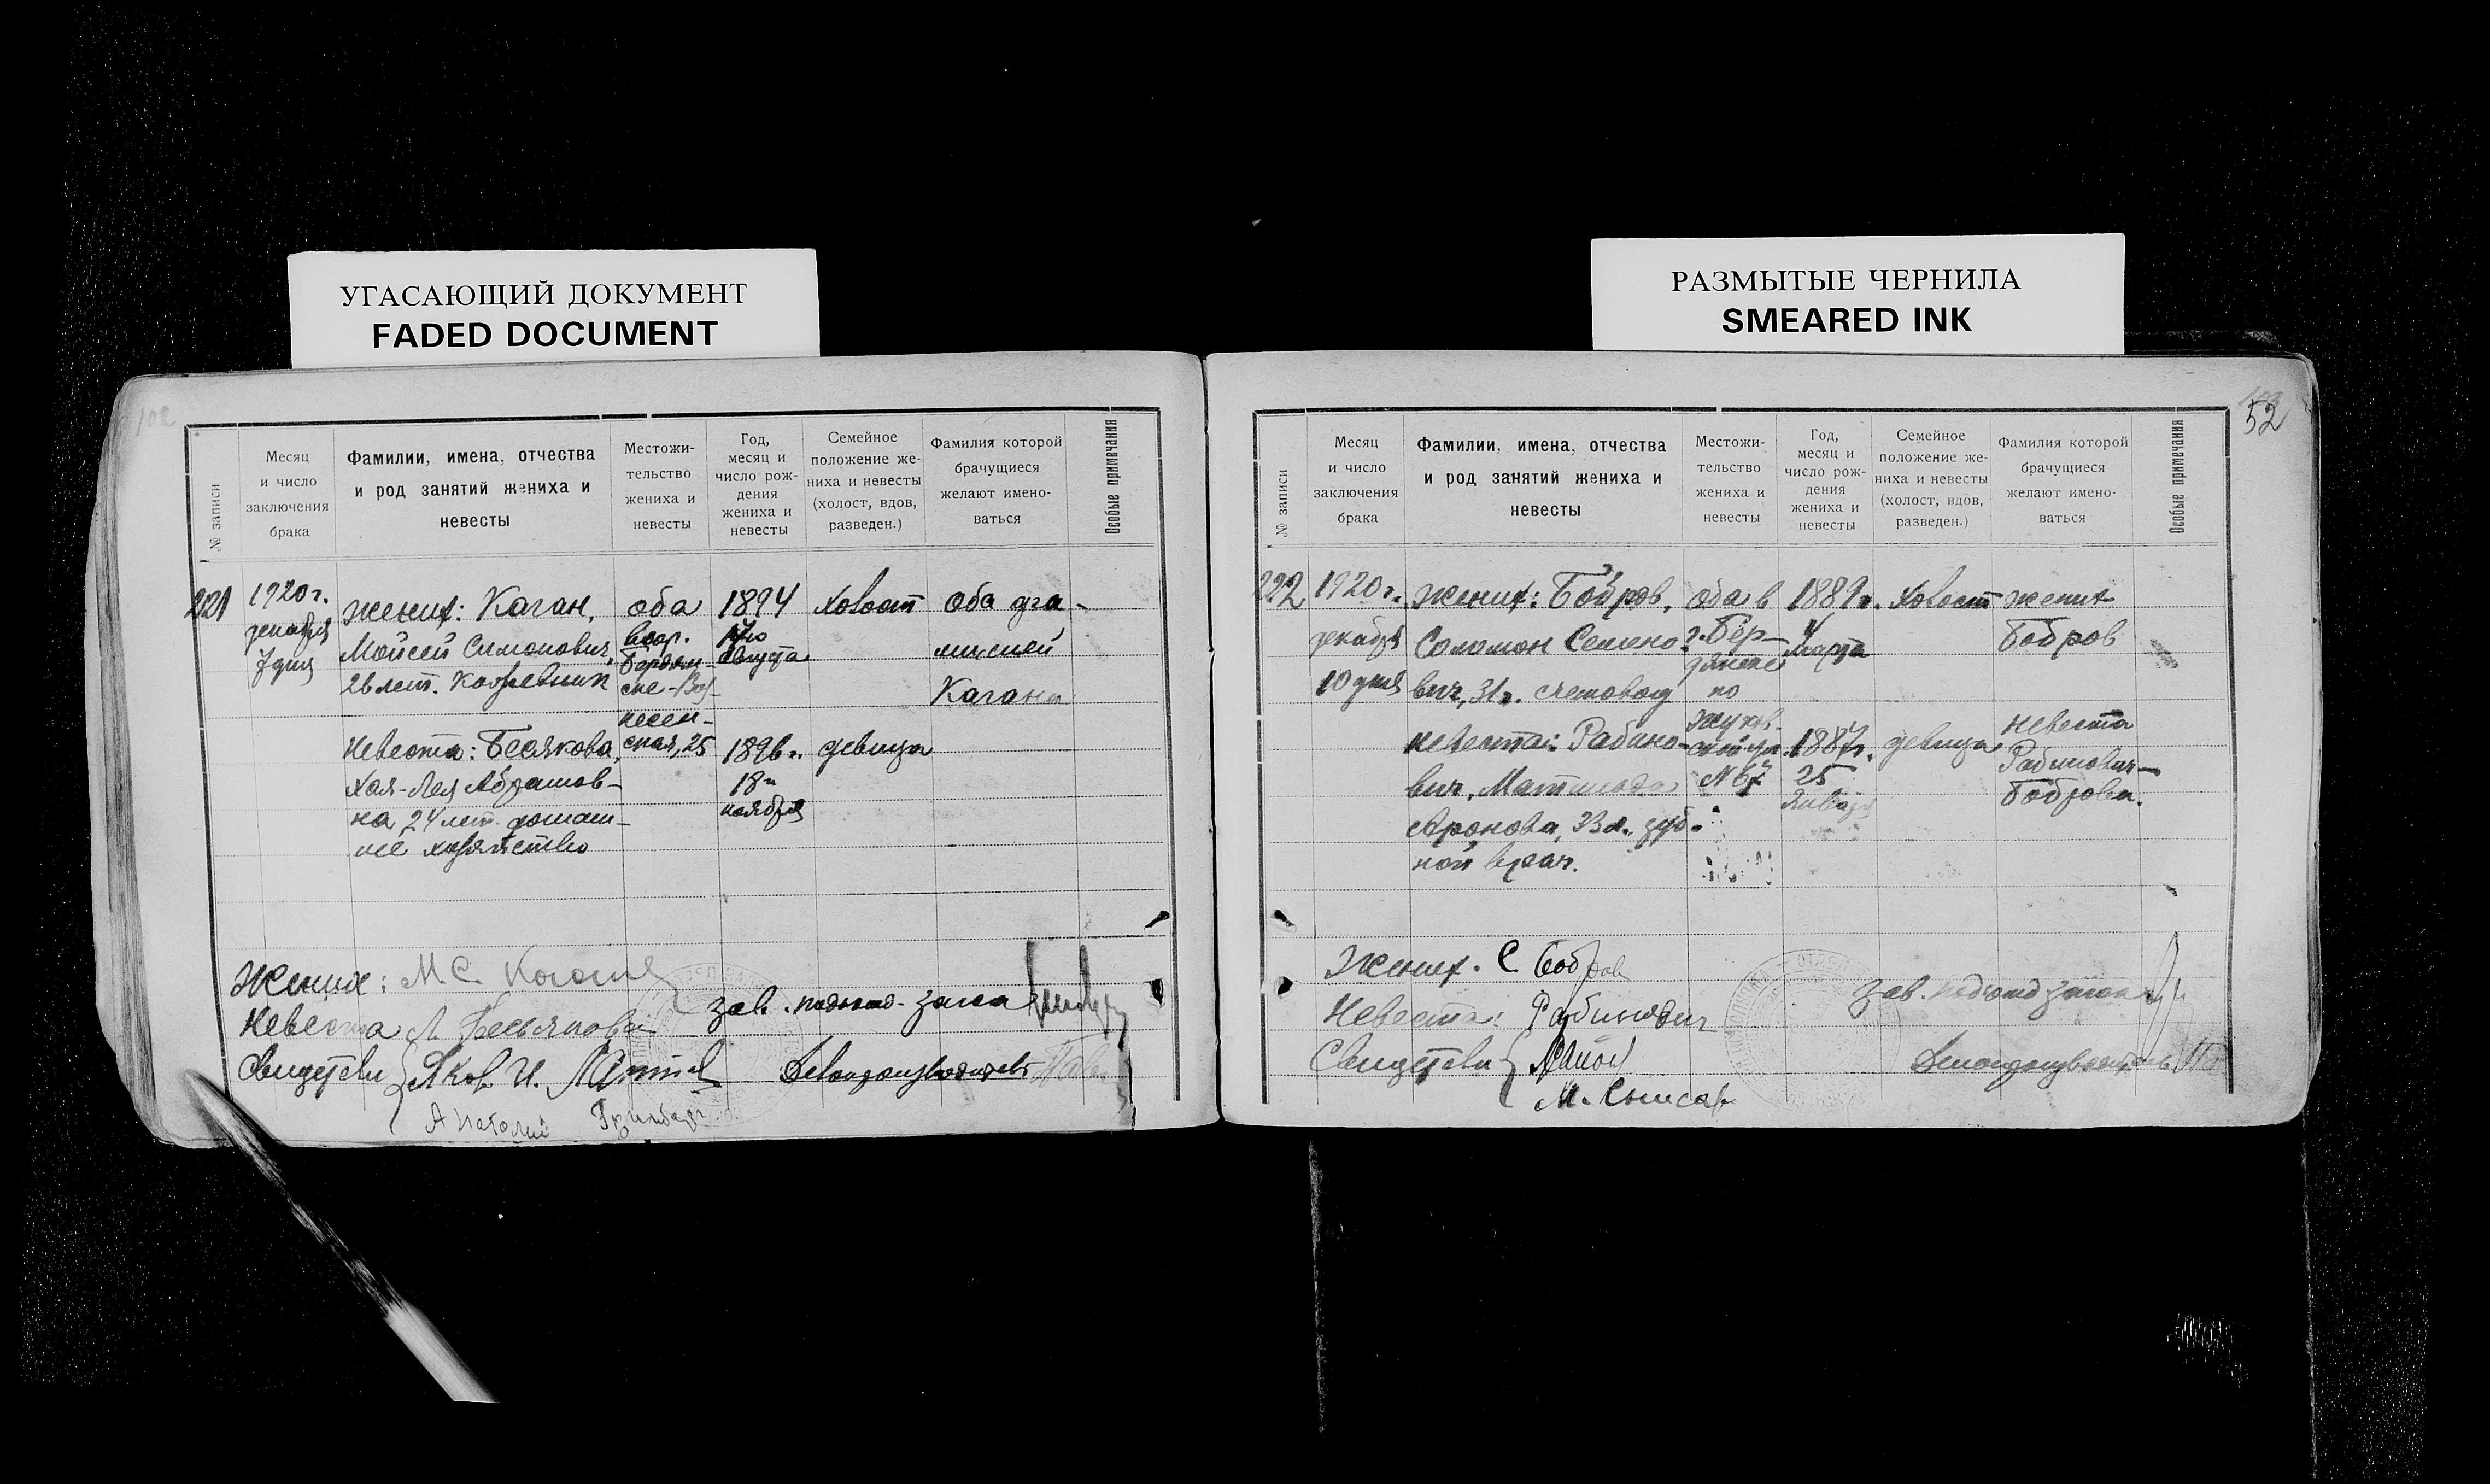 УГАСАЮЩИЙ ДОКУМЕНТ
FADED DOCUMENT
РАЗМЫТЫЕ ЧЕРНИЛА
SMEARED INK
102
№ записи
Месяц
и число
заключения
брака
Фамилии, имена, отчества
и род занятий жениха и
невесты
Местожи-
тельство
жениха и
невесты
Год,
месяц и
число рож-
дения
жениха и
невесты
Семейное
положение же-
ниха и невесты
(холост, вдов,
разведен.)
Фамилия которой
брачущиеся
желают имено-
ваться
Особые примечания
221
1920 г.
декабря
7 дня
Жених: Каган,
Мойсей Симонович,
26 лет.
Невеста: Бесякова,
Хая-Лея Абрамов-
на 24 лет. домаш-
нее хозяйство
оба
Бердян-
ске-Воз-
несен-
ская, 25
1894
17го
августа
1896 г.
18го
ноября
холост
девица
оба фа-
милией
Каган
Жених: М С Коган
Невеста Л Бесьякова
Свидетели Яков И.
Анатолий Гринберг
зав. подотд. загса
Делопроизводитель
52
№ записи
Месяц
и число
заключения
брака
Фамилии, имена, отчества
и род занятий жениха и
невесты
Местожи-
тельство
жениха и
невесты
Год,
месяц и
число рож-
дения
жениха и
невесты
Семейное
положение же-
ниха и невесты
(холост, вдов,
разведен.)
Фамилия которой
брачущиеся
желают имено-
ваться
Особые примечания
222
1920 г.
декабря
10 дня
Жених: Бобров,
Соломон Семено-
вич, 31 г. счетовод
Невеста: Рабино-
вич, Матильда
Аронова, 33 л. зуб-
ной врач.
оба в
г. Бер-
дянске
по
Жуков-
ской ул.
№ 67
1889 г.
4
марта
1887 г.
25
Января
холост
девица
жених
Бобров
невеста
Рабинович-
Боброва.
Жених. С Бобров
Невеста: Рабинович
Свидетели
М.
зав. подотд загса
Делопроизводитель